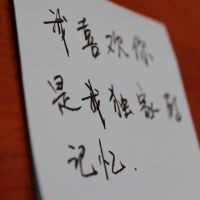 我喜欢你
是我独家的
记忆.